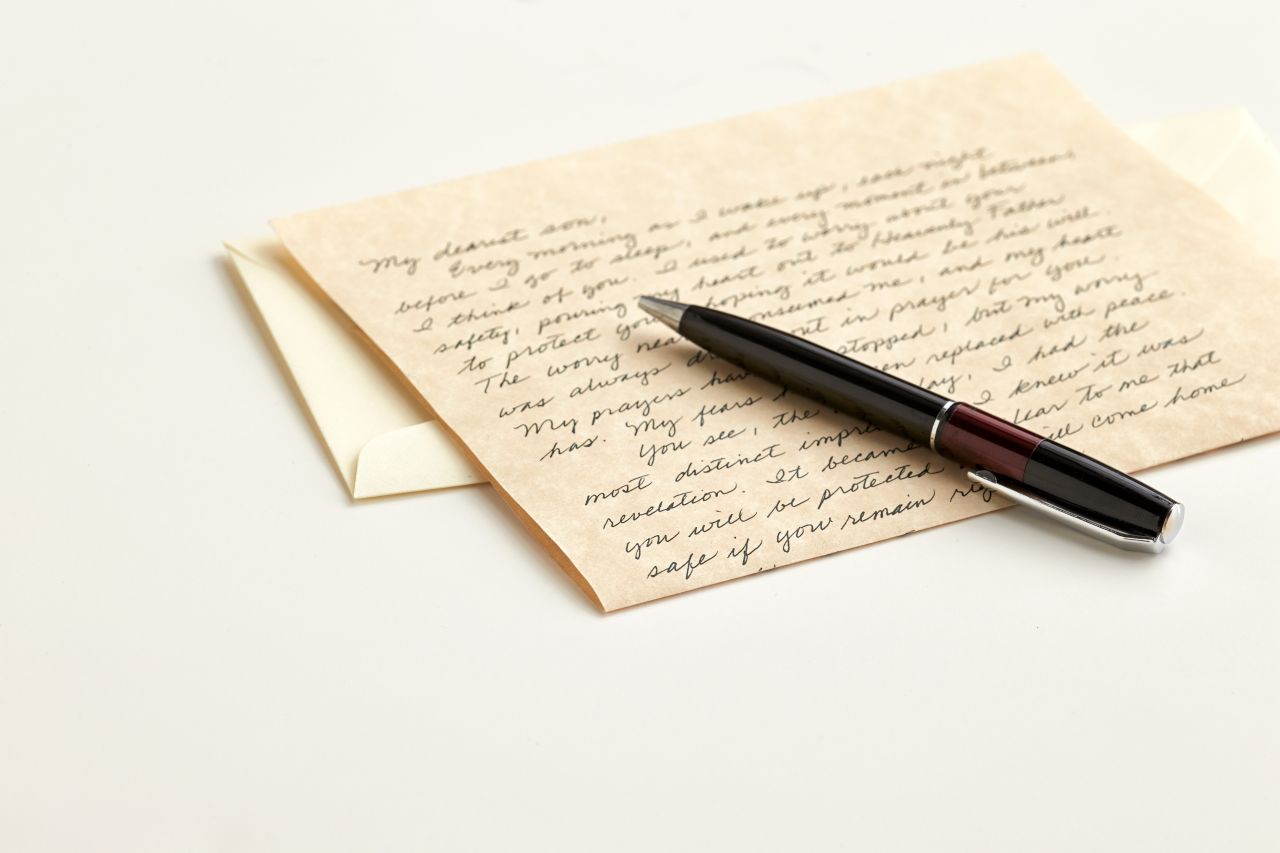 My dearest son,
Every morning as I wake up, each night
before I go to sleep, and every moment in between,
I think of you. I used to worry about your
safety, pouring my heart out to Heavenly Father
to protect you, hoping it would be his will.
The worry consumed me, and my heart
was always out in prayer for you.
My prayers stopped, but my worry
has. My fears replaced with peace.
You see, the I had the
most distinct I knew it was
revelation. It became to me that
you will be protected come home
safe if you remain